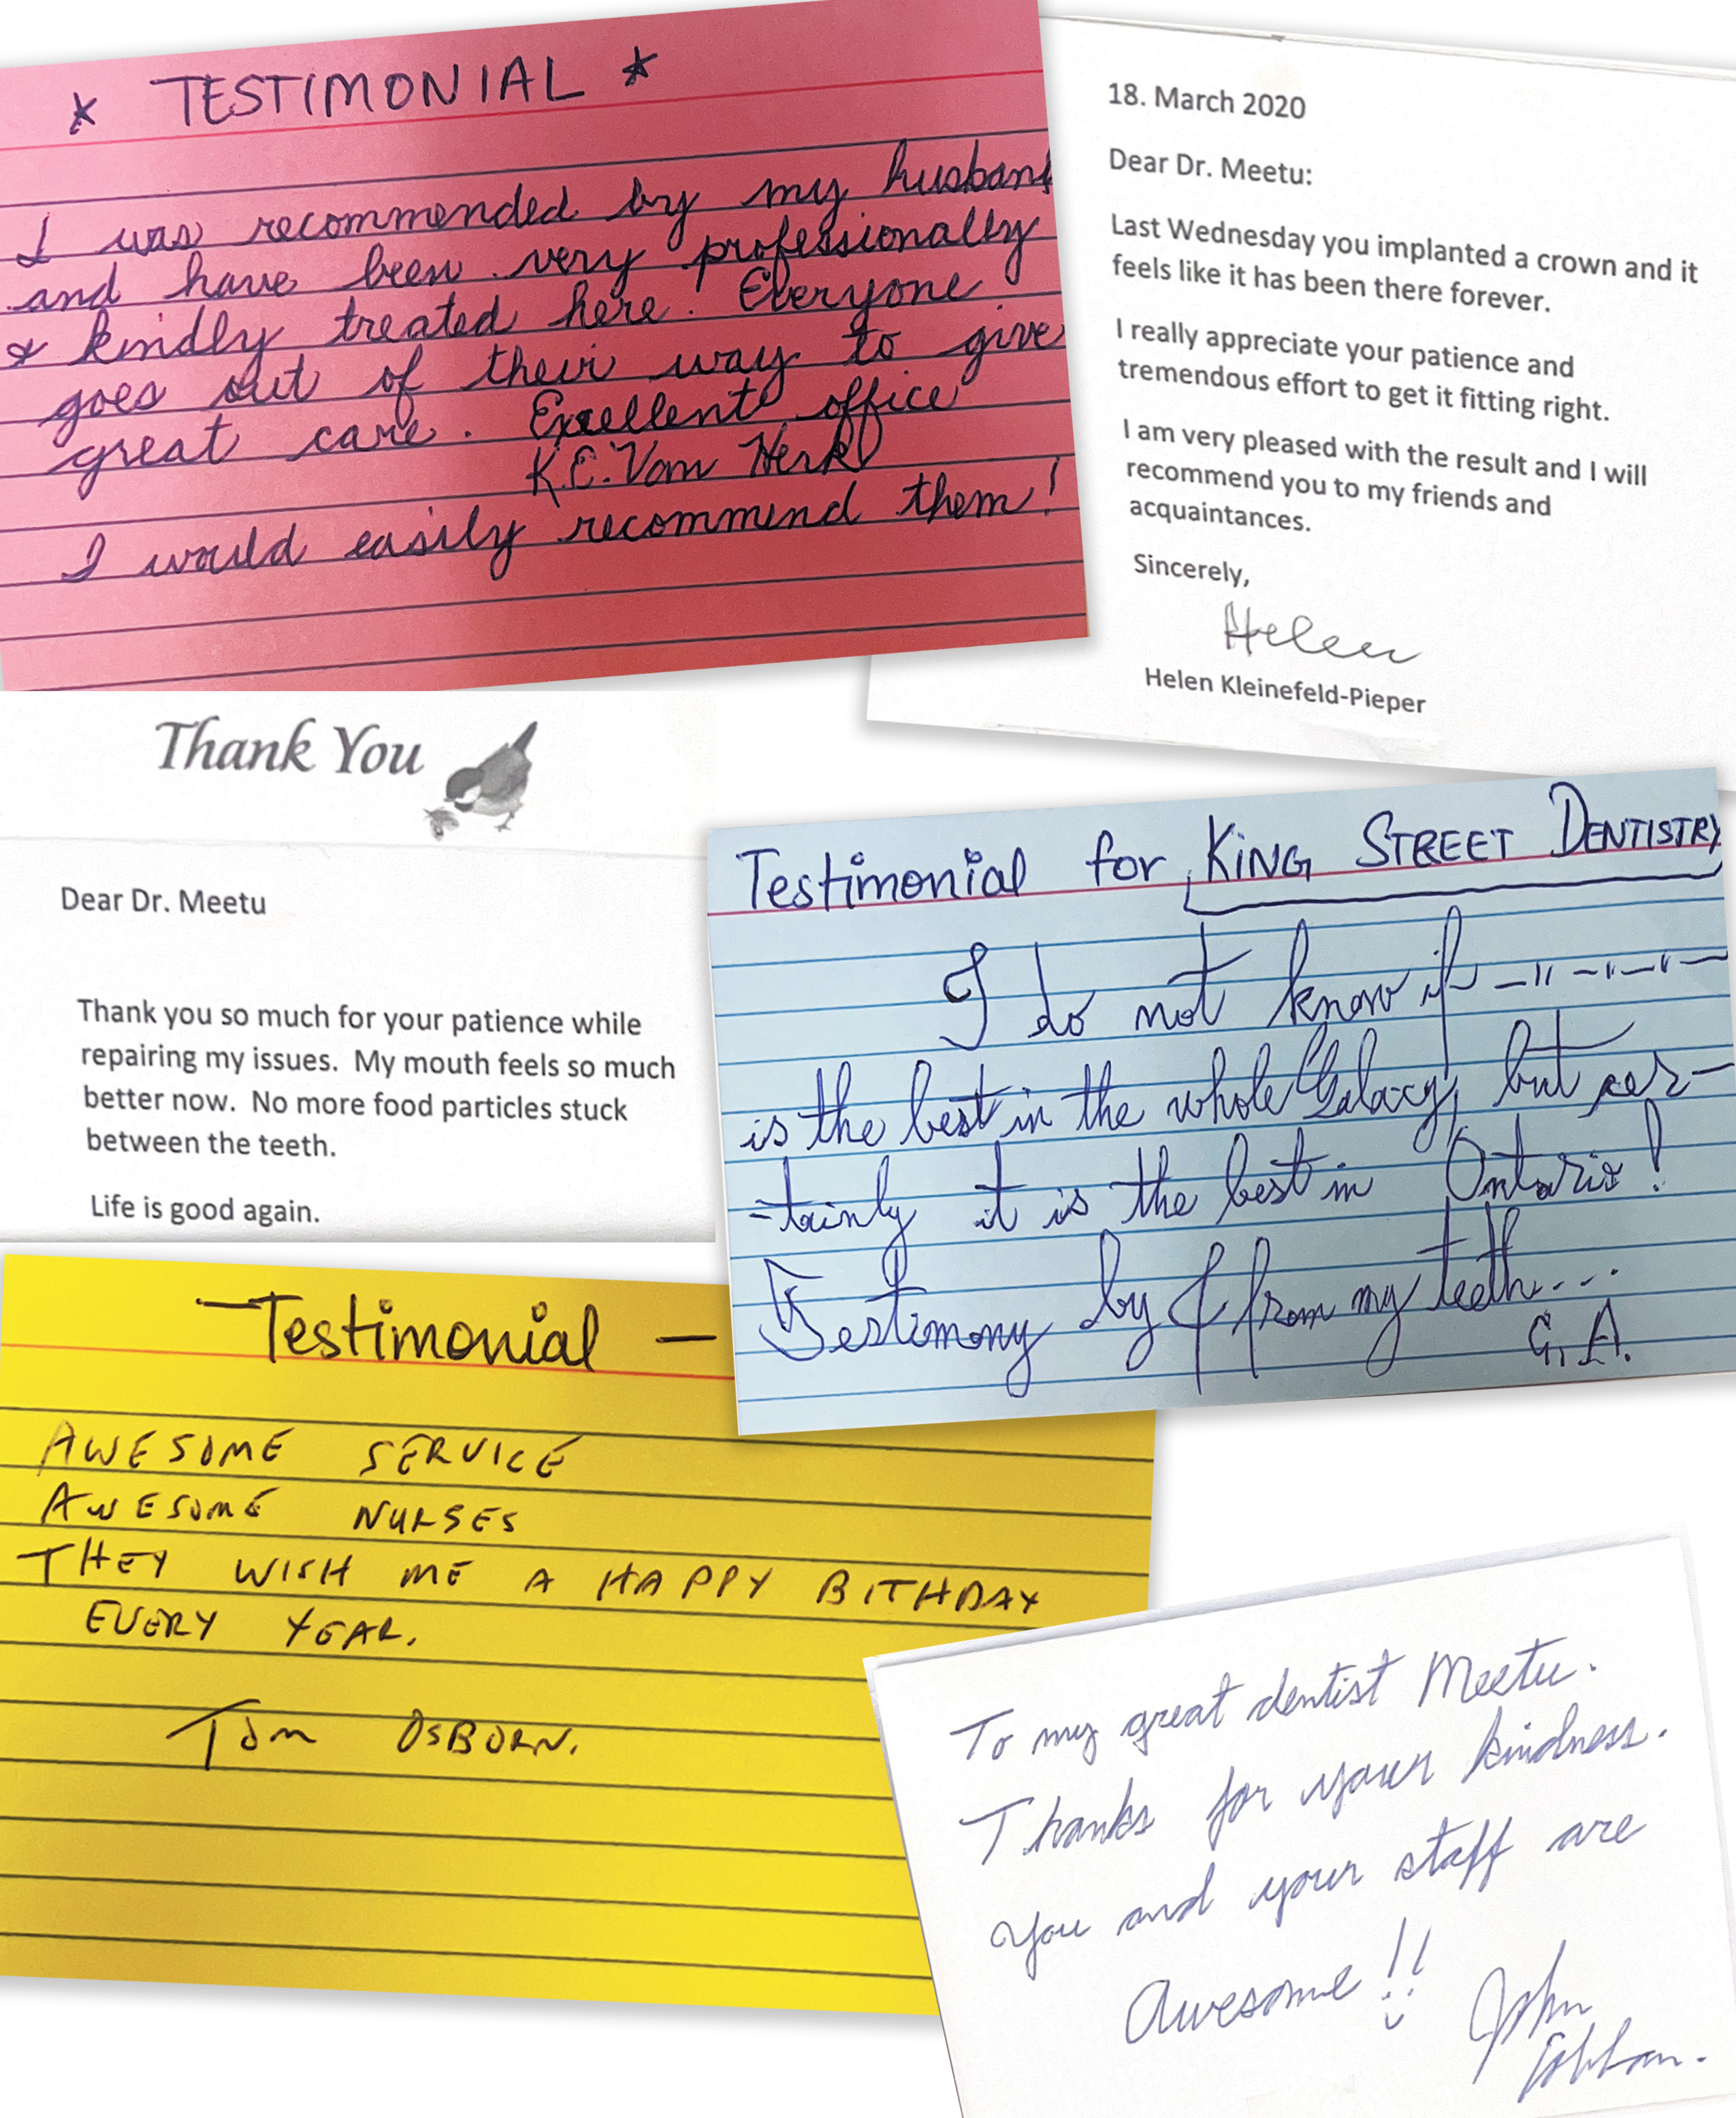 * TESTIMONIAL *
I was recommended by my husband
and have been very professionally
& kindly treated here. Everyone
goes out of their way to give
great care. Excellent office
K.C. Van Herk
I would easily recommend them!
18. March 2020
Dear Dr. Meetu:
Last Wednesday you implanted a crown and it
feels like it has been there forever.
I really appreciate your patience and
tremendous effort to get it fitting right.
I am very pleased with the result and I will
recommend you to my friends and
acquaintances.
Sincerely,
Helen
Helen Kleinefeld-Pieper
Thank You
Dear Dr. Meetu
Thank you so much for your patience while
repairing my issues. My mouth feels so much
better now. No more food particles stuck
between the teeth.
Life is good again.
Testimonial for KING STREET DENTISTRY
I do not know if -"-"-"-
is the best in the whole Galaxy, but cer-
-tainly it is the best in Ontario!
Testimony by & from my teeth...
G.A.
Testimonial -
AWESOME SERVICE
AWESOME NURSES
THEY WISH ME A HAPPY BITHDAY
EVERY YEAR.
TOM OSBORN.
To my great dentist Meetu.
Thanks for your kindness.
You and your staff are
Awesome!!
John